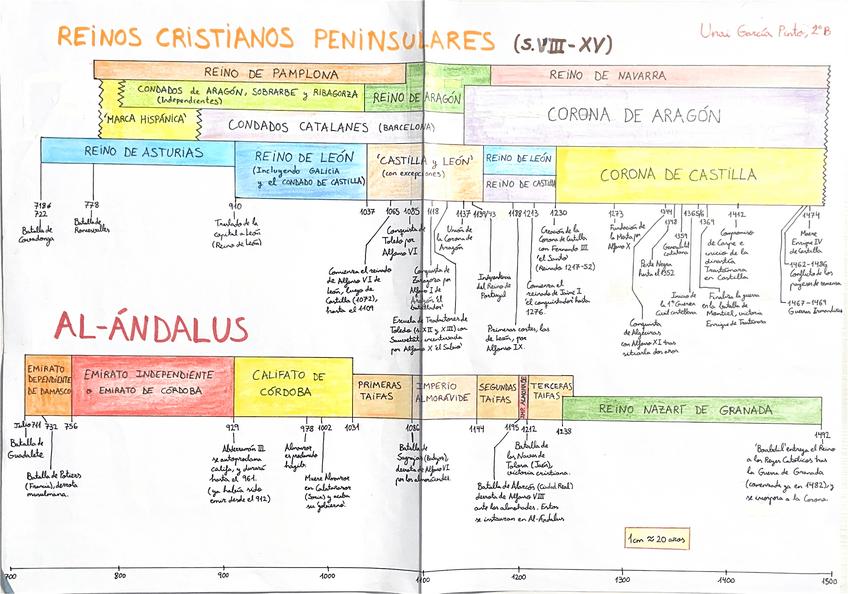 REINOS CRISTIANOS PENINSULARES (S.VIII-XV)
Unai García Pinto, 2ºB
REINO DE PAMPLONA
REINO DE NAVARRA
CONDADOS DE ARAGÓN, SOBRARBE y RIBAGORZA
(Independientes)
REINO DE ARAGÓN
CORONA DE ARAGÓN
'MARCA HISPÁNICA'
CONDADOS CATALANES (BARCELONA)
REINO DE ASTURIAS
REINO DE LEÓN
(Incluyendo GALICIA
y el CONDADO DE CASTILLA)
'CASTILLA y LEÓN'
(con excepciones)
REINO DE LEÓN
REINO DE CASTILLA
CORONA DE CASTILLA
718 ó
722
Batalla de
Covadonga
778
Batalla de
Roncesvalles
910
Traslado de la
capital a León
(Reino de León)
1037
Comienza el reinado
de Alfonso VI de
León, luego de
Castilla (1072),
hasta el 1109
1065
1085
Conquista de
Toledo por
Alfonso VI
1118
Conquista de
Zaragoza por
Alfonso I de
Aragón 'El
batallador'
Escuela de Traductores de
Toledo (s. XII y XIII) con
por Alfonso X 'el Sabio'
1137
Unión de
la Corona de
Aragón
1143
Independencia
del Reino de
Portugal
1188
Primeras cortes, las
de León, por
Alfonso IX.
1213
Comienza el
reinado de Jaime I
'el conquistador' hasta
1276.
1230
Creación de la
Corona de Castilla
con Fernando III
'el Santo'
(Reinado 1217-52)
1273
Fundación de
la Mesta por
Alfonso X
1344
Conquista
de Algeciras
con Alfonso XI tras
1348
Peste Negra
hasta el 1352
1359
1365/6
Inicio de
la 1ª Guerra
Civil castellana
1369
Finaliza la guerra
en la batalla de
Montiel, victoria
Enrique de Trastámara
1412
Compromiso
de Caspe e
inicio de la
dinastía
Trastámara
en Castilla
1474
Muere
Enrique IV
de Castilla
1462-1486
Conflicto de los
payeses de remensa
1467-1469
Guerra Irmandiña
AL-ÁNDALUS
EMIRATO
DEPENDIENTE
DE DAMASCO
EMIRATO INDEPENDIENTE
o EMIRATO DE CÓRDOBA
CALIFATO DE
CÓRDOBA
PRIMERAS
TAIFAS
IMPERIO
ALMORÁVIDE
SEGUNDAS
TAIFAS
IMP. ALMOHADE
TERCERAS
TAIFAS
REINO NAZARÍ DE GRANADA
Julio 711
Batalla de
Guadalete
732
Batalla de Poitiers
(Francia), derrota
musulmana.
756
929
Abderramán III
se autoproclama
califa, y durará
hasta el 961.
(ya había sido
emir desde el 912)
978
Almanzor,
es profundo
hayib
1002
Muere Almanzor
en Calatañazor
(Soria) y acaba
su gobierno.
1031
1086
Batalla de
Sagrajas (Badajoz),
derrota de Alfonso VI
por los almorávides.
1144
1195
Batalla de Alarcos (Ciudad Real)
derrota de Alfonso VIII
ante los almohades. Estos
se instauran en Al-Ándalus
1212
Batalla de
las Navas de
Tolosa (Jaén),
victoria cristiana.
1238
1492
'Boabdil' entrega el Reino
a los Reyes Católicos tras
la Guerra de Granada
(comenzada ya en 1482), y
se incorpora a la Corona.
1cm ≈ 20 años
700
800
900
1000
1100
1200
1300
1400
1500